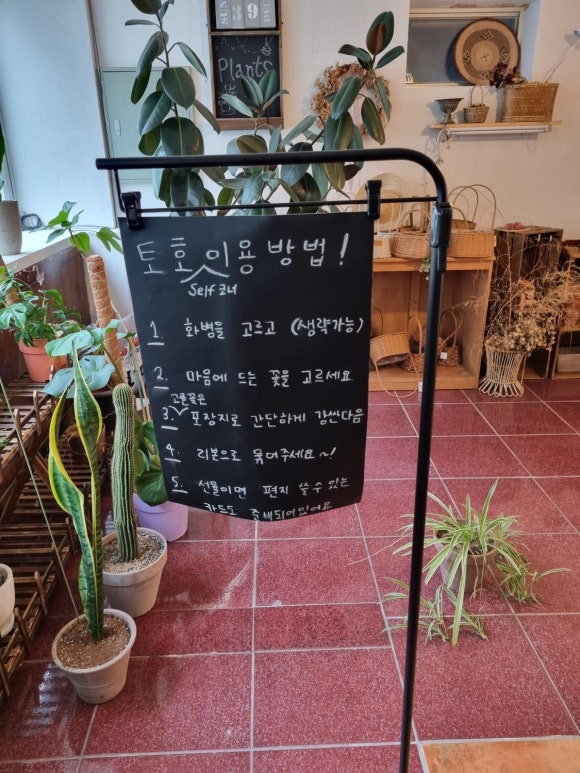 Plants
토호 이용 방법!
Self 코너
1. 화병을 고르고 (생략가능)
2. 마음에 드는 꽃을 고르세요
고른꽃은
3. 포장지로 간단하게 감싼다음
4. 리본으로 묶어주세요~!
5. 선물이면 편지 쓸 수 있는
카드도 준비되어있어요